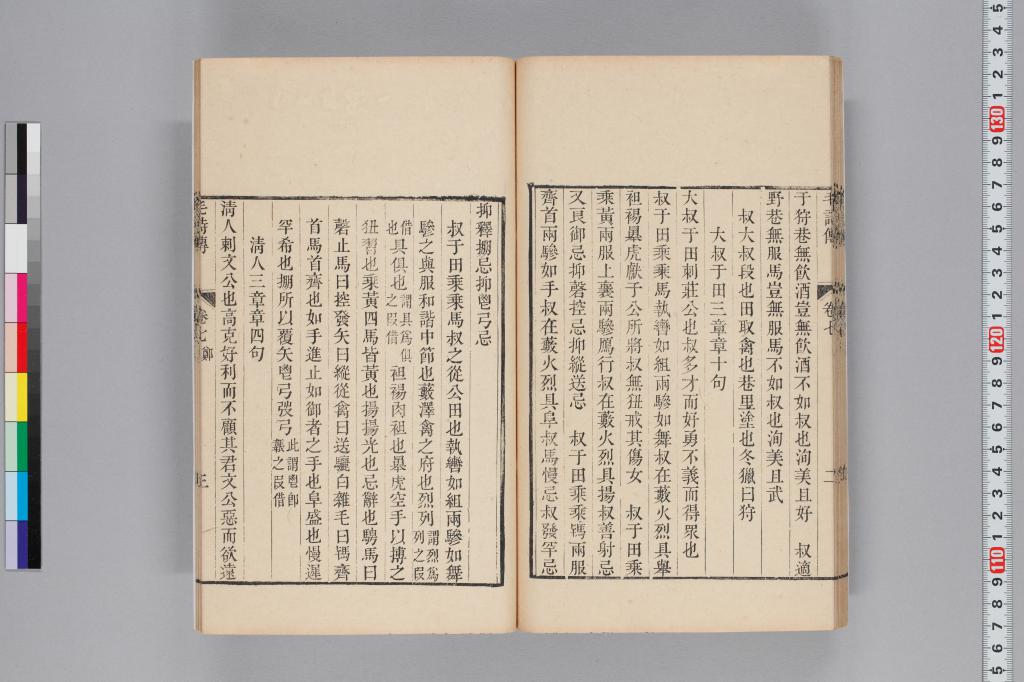 于狩巷無飲酒豈無飲酒不如叔也洵美且好　叔適
野巷無服馬豈無服馬不如叔也洵美且武
叔大叔段也田取禽也巷里塗也冬獵曰狩
大叔于田三章章十句
大叔于田刺莊公也叔多才而好勇不義而得眾也
叔于田乘乘馬執轡如組兩驂如舞叔在藪火烈具舉
袒裼暴虎獻于公所將叔無狃戒其傷女　叔于田乘
乘黃兩服上襄兩驂鴈行叔在藪火烈具揚叔善射忌
又良御忌抑磬控忌抑縱送忌　叔于田乘乘鴇兩服
齊首兩驂如手叔在藪火烈具阜叔馬慢忌叔發罕忌
毛詩傳　卷七　二
抑釋掤忌抑鬯弓忌
叔于田乘乘馬叔之從公田也執轡如組兩驂如舞
驂之與服和諧中節也藪澤禽之府也烈列謂烈爲列之叚
借具俱也謂具爲俱之叚借也袒裼肉袒也暴虎空手以搏之
狃習也乘黃四馬皆黃也揚揚光也忌辭也騁馬曰
磬止馬曰控發矢曰縱從禽曰送驪白雜毛曰鴇齊
首馬首齊也如手進止如御者之手也阜盛也慢遲
罕希也掤所以覆矢鬯弓弢弓此謂鬯卽韔之叚借
清人三章章四句
清人刺文公也高克好利而不顧其君文公惡而欲遠
毛詩傳　卷七　鄭　三